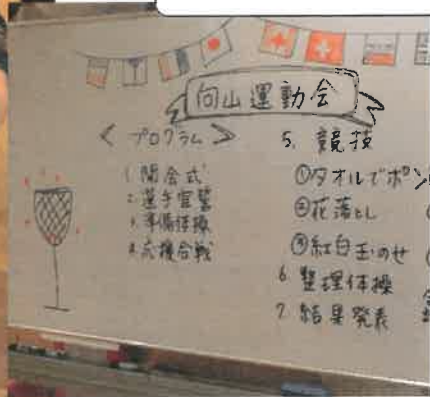 向山運動会
< プログラム >
1. 開会式
2. 選手宣誓
3. 準備体操
4. 応援合戦
5. 競技
①タオルでポン
②花落とし
③紅白玉のせ
6. 整理体操
7. 結果発表